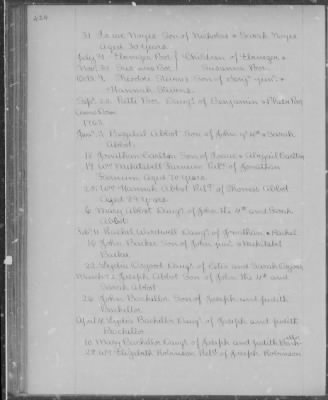 424
31 Isaac Noyes Son of Nicholas & Sarah Noyes
Aged 30 Years.
July 31 Ebenezer Poor } Children of Ebenezer &
Novr. 30 Poor } Susanna Poor.
Octr. 9 Theodore Stevens Son of Benj. junr. &
Hannah Stevens.
Sept. 20 Patte Poor Daugr. of Benjamin & Phebe Poor
Anno Dom
1763.
Janr. 3 Hezekiel Abbot Son of John ye 4th & Sarah
Abbot.
17 Jonathan Carlton Son of Isaac & Abigail Carlton
19 Wo. Mehitabell Farnum Relt. of Jonathan
Farnum Aged 70 Years.
25 Wo. Hannah Abbot Relt. of Thomas Abbot
Aged 89 Years.
6 Mary Abbot Daugr. of John the 4th and Sarah
Abbot
Feb. 11 Rachel Wardwell Daugr. of Jonathan & Rachel.
16 John Barker Son of John junr. & Mehitabel
Barker
22 Lydia Osgood Daugr. of and Sarah Osgood
March 2 Joseph Abbot Son of John the 4th and
Sarah Abbot
26 John Bachellor Son of Joseph and Judith
Bachellor
April 4 Lydia Bachellor Daugr. of Joseph and Judith
Bachellor
10 Mary Bachellor Daugr. of Joseph and Judith Bachellor
28 Wo. Elizabeth Robinson Relt. of Joseph Robinson